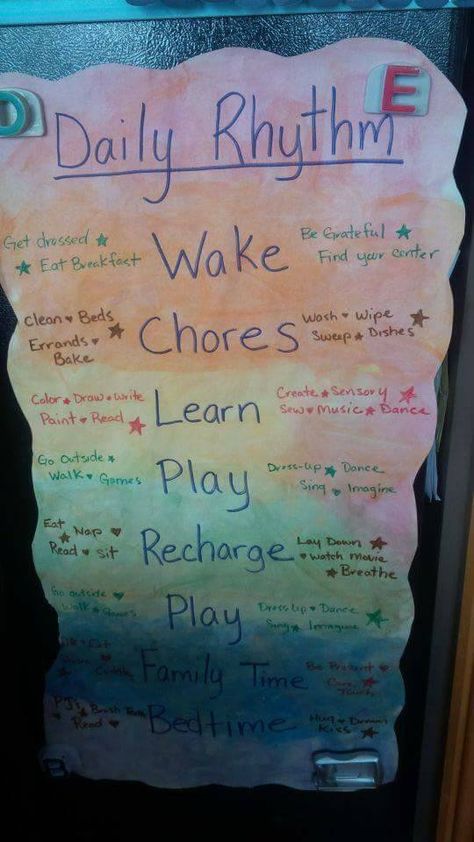 E
Daily Rhythm
Get dressed ★ Be Grateful ★
★ Eat Breakfast Wake Find your center
Clean ♥ Beds Wash ♥ Wipe ★
Errands ♥ ★ Chores Sweep ★ Dishes
Bake
Color ★ Draw ♥ Write Create ★ Sensory ★
Paint ♥ Read ★ Learn Sew ♥ Music ★ Dance
Go Outside ★ Dress-Up ★ Dance
Walk ♥ Games Play Sing ♥ Imagine
Eat ★ Nap ♥ Lay Down ★
Read ♥ Sit Recharge ♥ Watch Movie
★ Breathe
Go outside ♥ Dress Up ♥ Dance
Walk ★ Games Play Sing ★ Imagine ★
Eat Be Present ♥
Cuddle Family Time Touch ★
PJ's ★ Brush Teeth Hug ♥
Read ♥ Bedtime Kiss ★
B